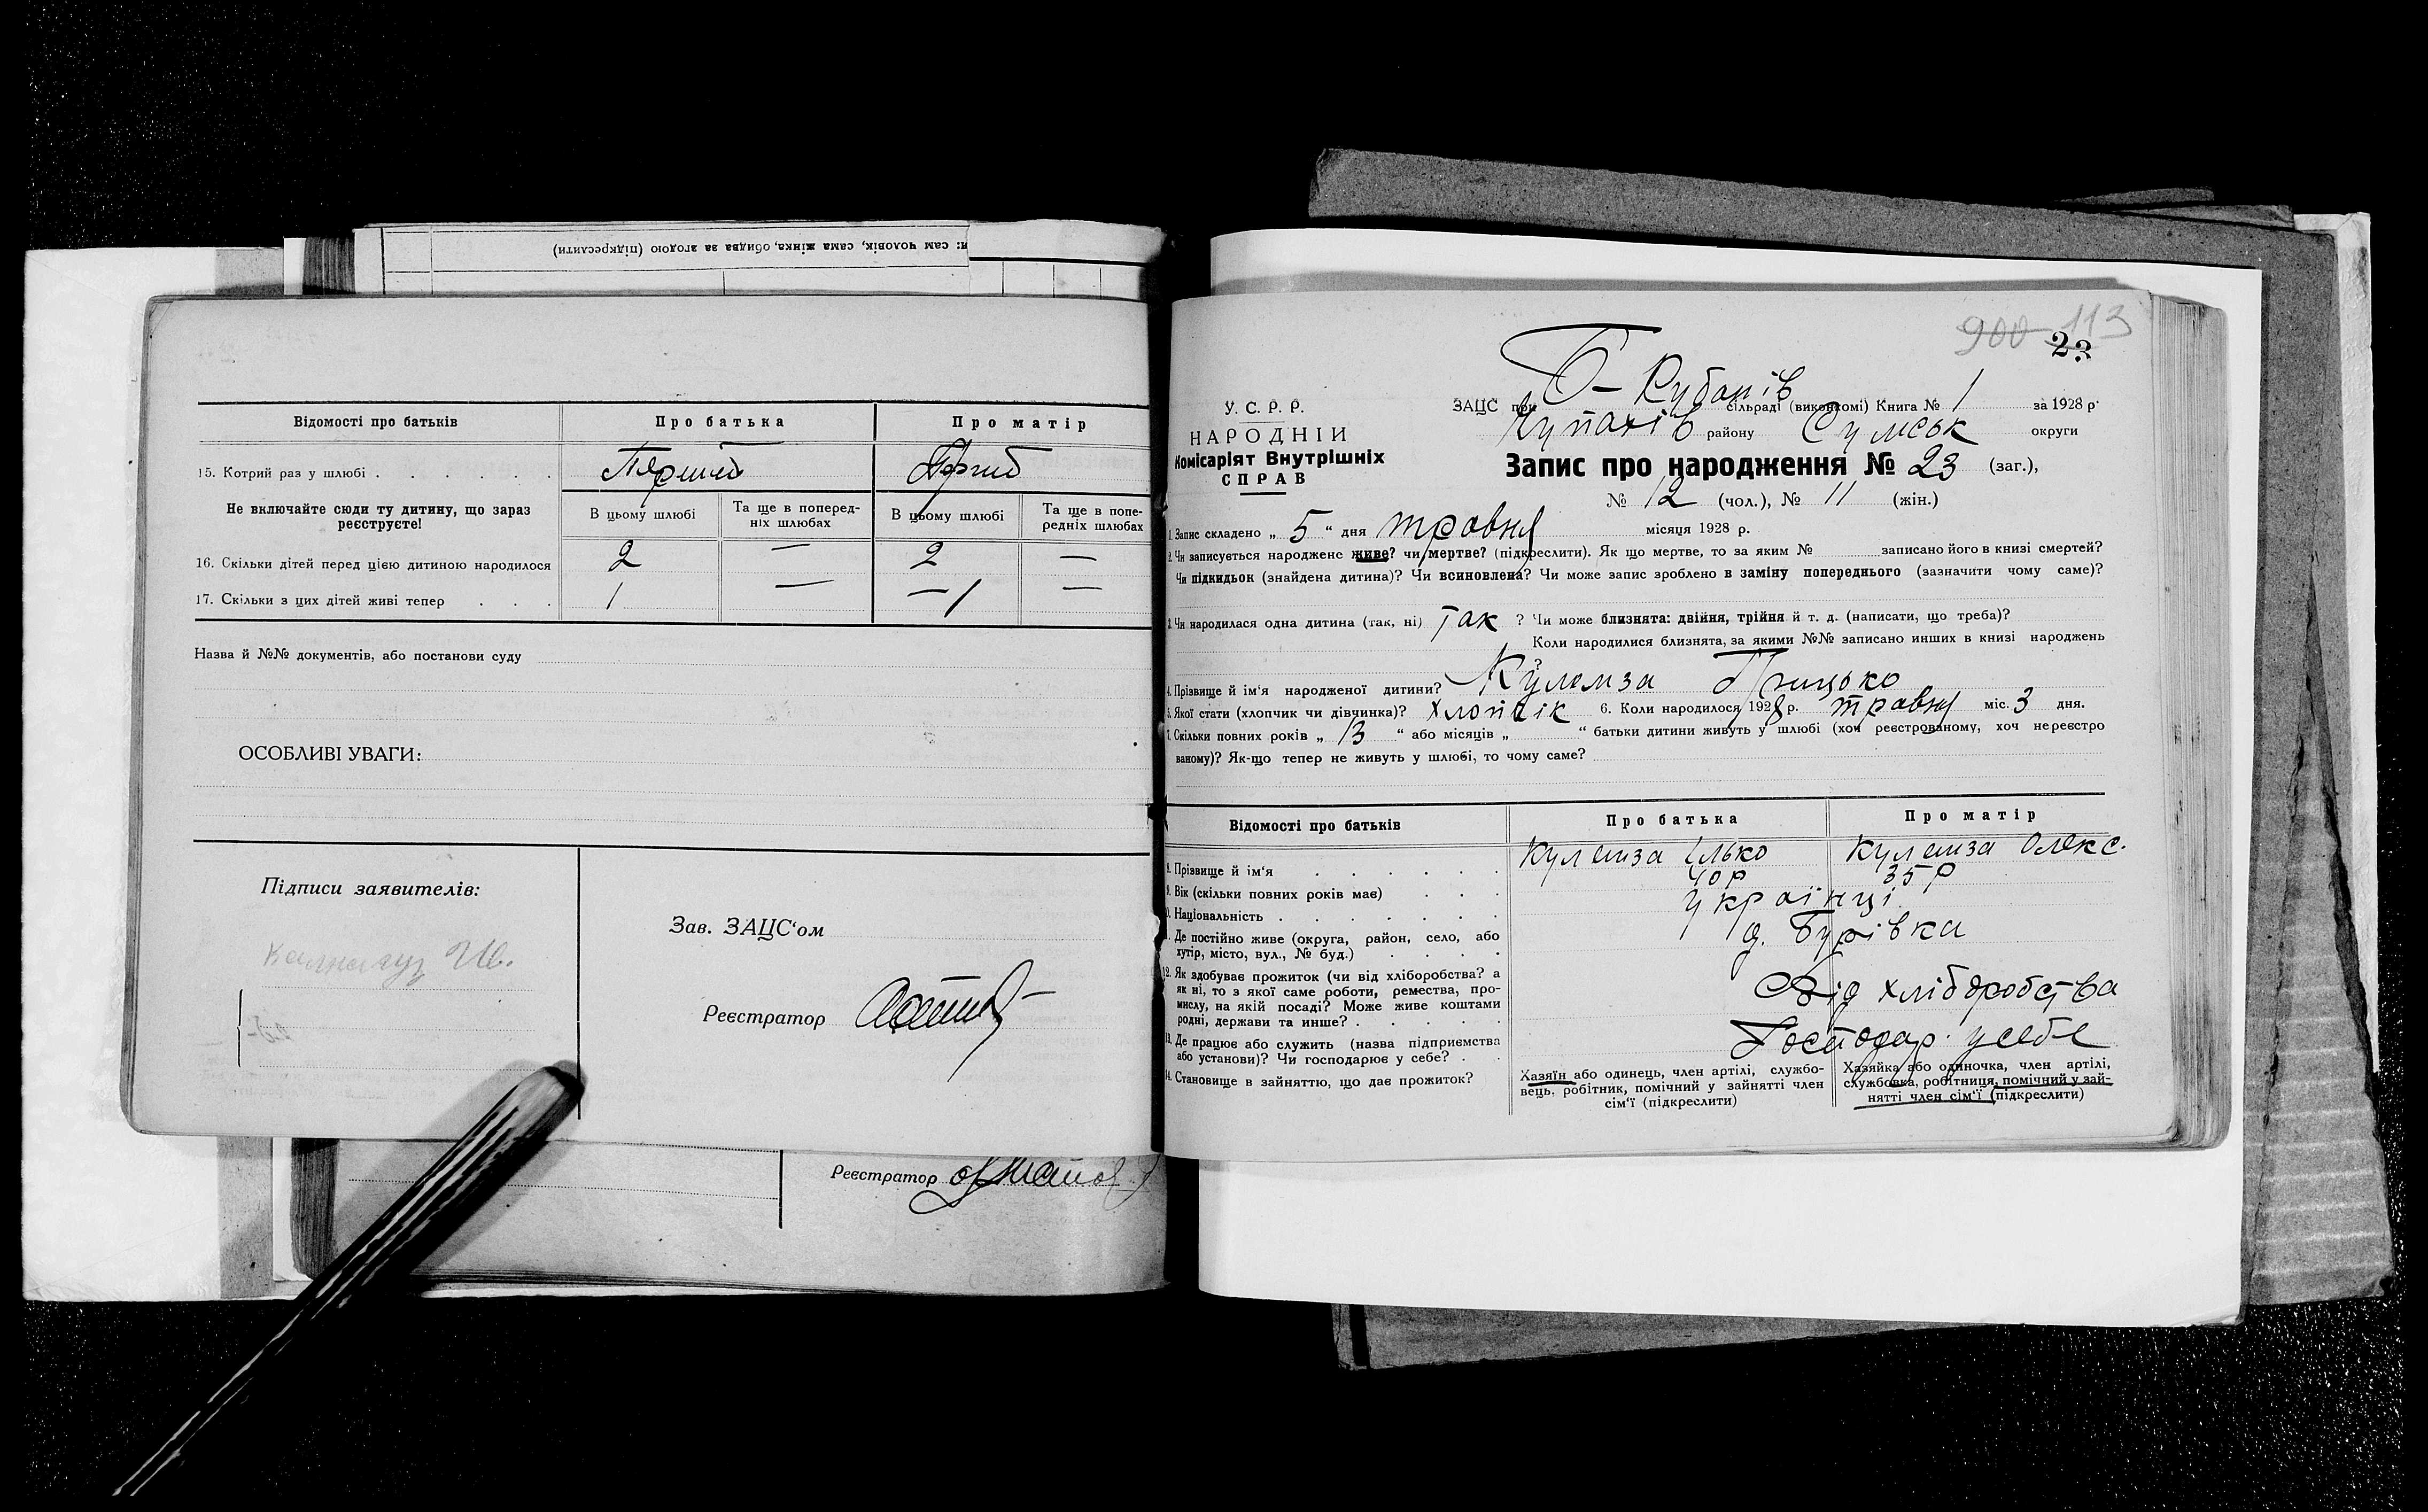 я: сам чоловік, сама жінка, обидва за згодою (підкреслити)
Відомості про батьків
Про батька
Про матір
15. Котрий раз у шлюбі . . . . . .
Не включайте сюди ту дитину, що зараз
реєструєте!
В цьому шлюбі
Та ще в поперед-
ніх шлюбах
В цьому шлюбі
Та ще в попе-
редніх шлюбах
16. Скільки дітей перед цією дитиною народилося 2 — 2 —
17. Скільки з цих дітей живі тепер . . . 1 — — 1 —
Назва й №№ документів, або постанови суду
ОСОБЛИВІ УВАГИ:
Підписи заявителів:
Зав. ЗАЦС'ом
Реєстратор
Реєстратор
900 113
23
У. С. Р. Р.
НАРОДНІЙ
Комісаріят Внутрішніх
СПРАВ
ЗАЦС при сільраді (виконкомі) Книга № 1 за 1928 р.
району Сумськ округи
Запис про народження № 23 (заг.),
№ 12 (чол.), № 11 (жін.)
1. Запис складено „ 5 “ дня травня місяця 1928 р.
2. Чи записується народжене живе? чи мертве? (підкреслити). Як що мертве, то за яким № записано його в книзі смертей?
Чи підкидьок (знайдена дитина)? Чи всиновлена? Чи може запис зроблено в заміну попереднього (зазначити чому саме)?
3. Чи народилася одна дитина (так, ні) так ? Чи може близнята: двійня, трійня й т. д. (написати, що треба)?
Коли народилися близнята, за якими №№ записано инших в книзі народжень
?
4. Прізвище й ім'я народженої дитини? Грицько
5. Якої стати (хлопчик чи дівчинка)? хлопчік 6. Коли народилося 1928 р. травня міс. 3 дня.
7. Скільки повних років „ 13 “ або місяців „ “ батьки дитини живуть у шлюбі (хоч реєстрованому, хоч нереєстро
ваному)? Як-що тепер не живуть у шлюбі, то чому саме?
Відомості про батьків
Про батька
Про матір
8. Прізвище й ім'я . . . . . . Ілько Олекс.
9. Вік (скільки повних років має) . . . 40 р 35 р
10. Національність . . . . . . . українці
11. Де постійно живе (округа, район, село, або
хутір, місто, вул., № буд.) . . . .
12. Як здобуває прожиток (чи від хліборобства? а
як ні, то з якої саме роботи, ремества, про-
мислу, на якій посаді? Може живе коштами
родні, держави та инше? . . . . .
Від хліборобства
13. Де працює або служить (назва підприємства
або установи)? Чи господарює у себе? . .
Господар. у себе
14. Становище в зайняттю, що дає прожиток?
Хазяїн або одинець, член артілі, службо-
вець, робітник, помічний у зайнятті член
сім'ї (підкреслити)
Хазяйка або одиночка, член артілі,
службовка, робітниця, помічний у зай-
нятті член сім'ї (підкреслити)